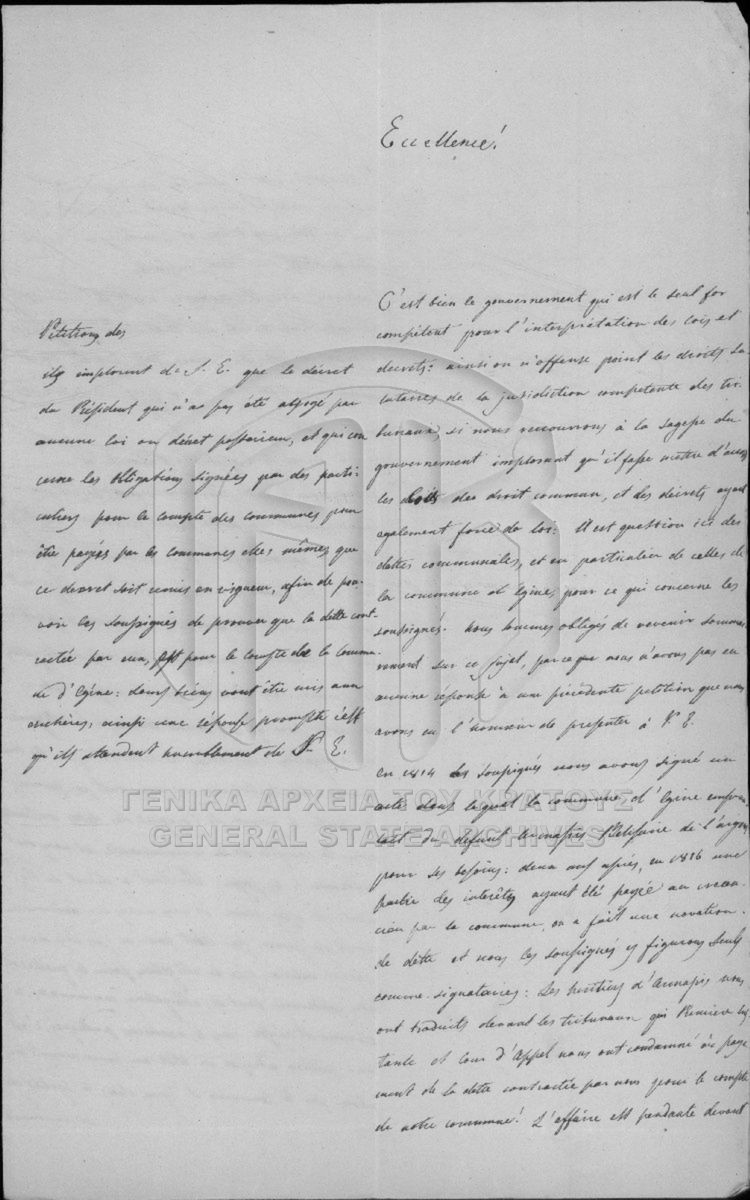 Excellence!
Petitions des
ils implorent de S. E. que le décret
du Président qui n'a pas été abrogé par
aucune loi ou décret posterieur, et qui con
cerne les obligations signées par des parti-
culiers pour le compte des communes pour
être payées par les communes elles mêmes, que
ce decret soit remis en vigueur, afin de pou-
voir les soussignés de prouver que la dette cont-
ractée par eux, est pour le compte de la commu-
ne d'Egine: leurs biens vont être mis aux
enchères, ainsi une réponse prompte c'est
qu'ils attendent humblement de V. E.
C'est bien le gouvernement qui est le seul for
compétent pour l'interprétation des lois et
decrets: ainsi on n'offense point les droits sa-
lutaires de la jurisdiction competente des tri-
bunaux, si nous recourrons à la sagesse du
gouvernement implorant qu'il fasse mettre d'accord
les lois du droit commun, et des décrets ayant
egalement force de loi. Il est question ici des
dettes communales, et en particulier de celles de
la commune d'Egine, pour ce qui concerne les
soussignés. Nous sommes obligés de revenir sommai-
rement sur ce sujet, parceque nous n'avons pas eu
aucune réponse à une précédente petition que nous
avons eu l'honneur de presenter à V. E.
En 1814 les soussignés nous avons signé un
acte dans lequel la commune d'Egine emprun-
tait du défunt de l'argent
pour ses besoins: deux ans après, en 1816 une
partie des interêts ayant été payée au crean-
cier par la commune, on a fait une novation
de dette et nous les soussignés y figurons seuls
comme signataires: Les heritiers d' nous
ont traduits devant les tribunaux qui Premiere Ins
tance et Cour d'Appel nous ont condamné au paye
ment de la dette contractée par nous pour le compte
de notre commune! L'affaire est pendante devant
ΓΕΝΙΚΑ ΑΡΧΕΙΑ ΤΟΥ ΚΡΑΤΟΥΣ
GENERAL STATE ARCHIVES